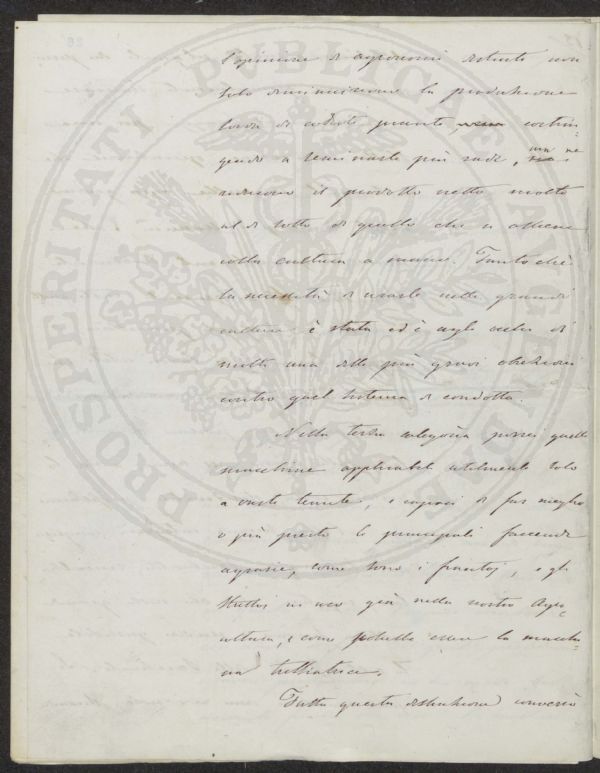 l'opinione di agronomi distinti non
solo diminuiscono la produzione
lorda di codeste piante, costrin-
gendo a seminarle più rade, ma ne
riducono il prodotto netto molto
al di sotto di quello che si ottiene
colla cultura a mano. Tanto chè
la necessità di usarle nella grande
cultura è stata ed è agli occhi di
molti una delle più gravi obiezioni
contro quel sistema di condotta.
Nella terza categoria porrei quelle
macchine applicabili utilmente solo
a vaste tenute, e capaci di far meglio
o più presto le principali faccende
agrarie, come sono i frantoj, e gli
strettoj in uso già nella nostra Agri-
cultura, e come potrebbe essere la macchi-
na trebbiatrice.
Tutta questa distinzione
PROSPERITATI PUBLICAE AUGENDAE